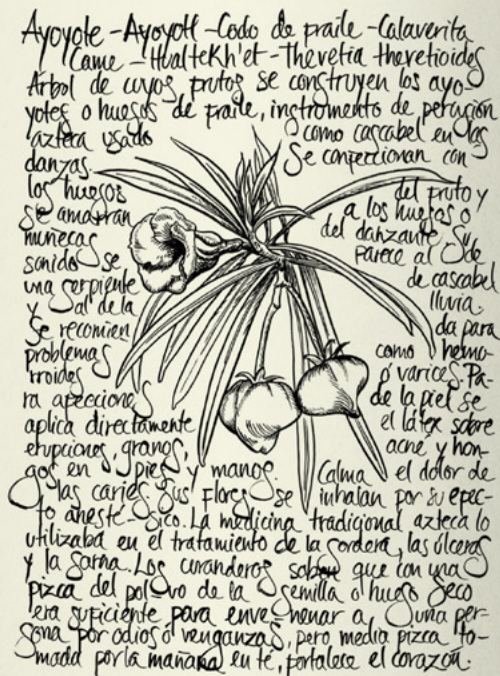 Ayoyote - Ayoyotl - Codo de fraile - Calaverita
Came - Hualtekh'et - Thevetia thevetioides
Árbol de cuyos frutos se construyen los ayo-
yotes o huesos de fraile, instrumento de percusión
azteca usado como cascabel en las
danzas. Se confeccionan con
los huesos del fruto y
se amarran a los huesos o
muñecas del danzante. Su
sonido se parece al de
una serpiente de cascabel
y al de la lluvia.
Se recomien da para
problemas como hemo
rroides ó varices. Pa-
ra afecciones de la piel se
aplica directamente el látex sobre
erupciones, granos, acne y hon-
gos en pies y manos. Calma el dolor de
las caries. Sus flores se inhalan por su efec-
to anesté-sico. La medicina tradicional azteca lo
utilizaba en el tratamiento de la sordera, las úlceras
y la sarna. Los curanderos saben que con una
pizca del polvo de la semilla o hueso seco
era suficiente para envenenar a una per-
sona por odios ó venganzas, pero media pizca to-
mada por la mañana en té, fortalece el corazón.